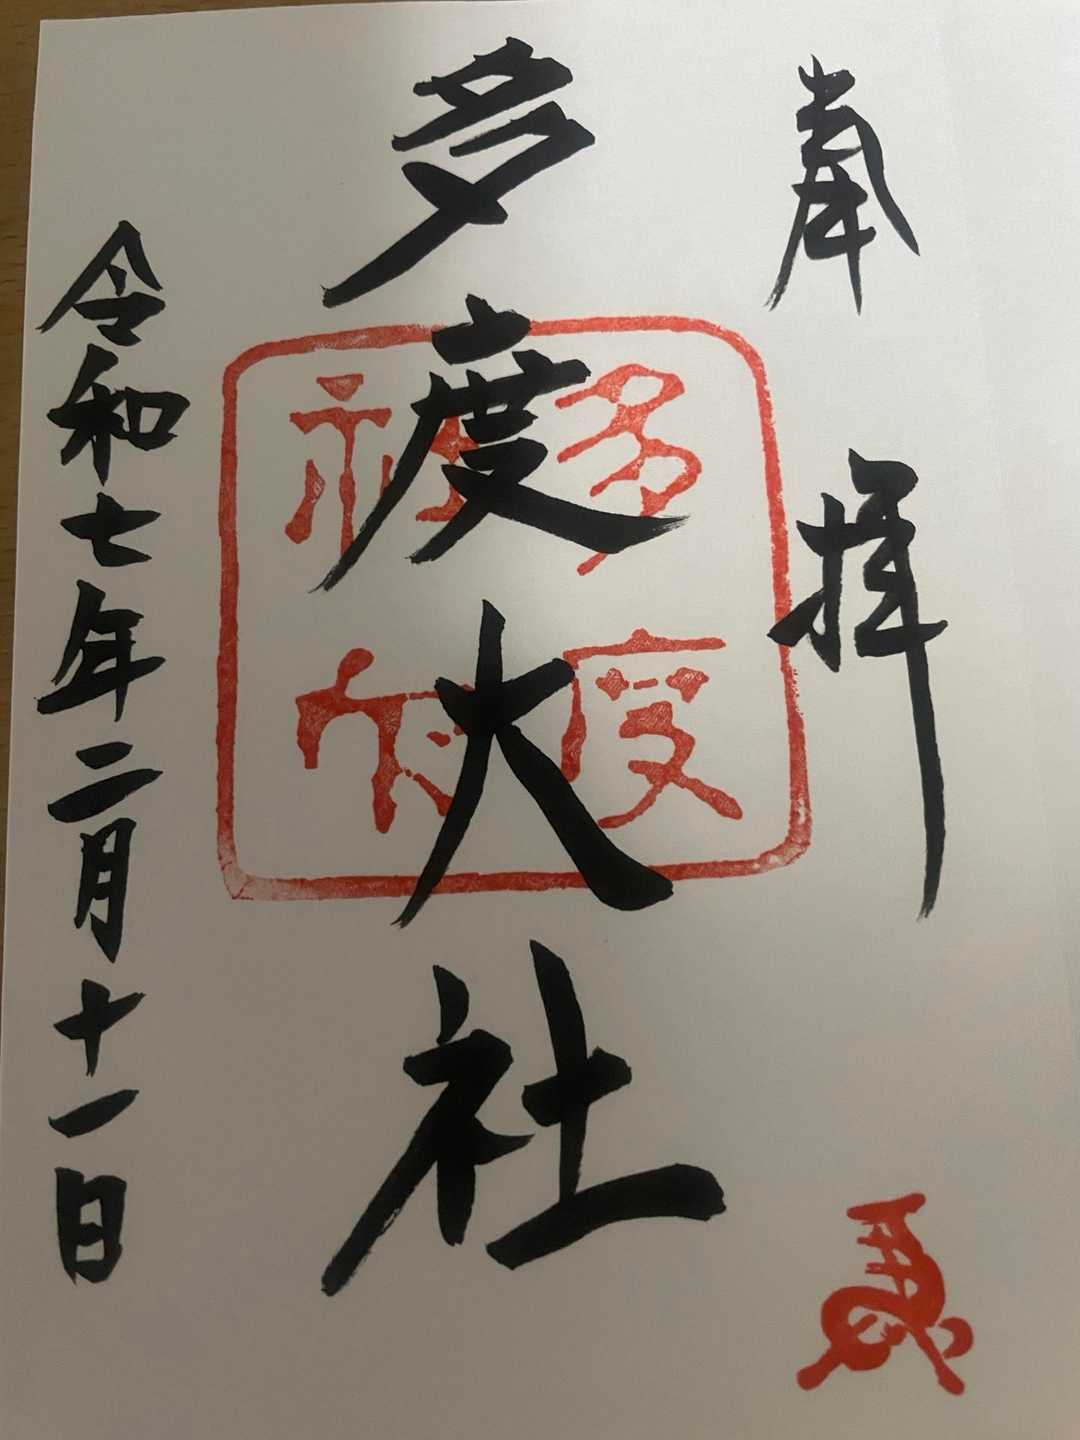 奉拝
多度大社
多度
神社
令和七年二月十一日